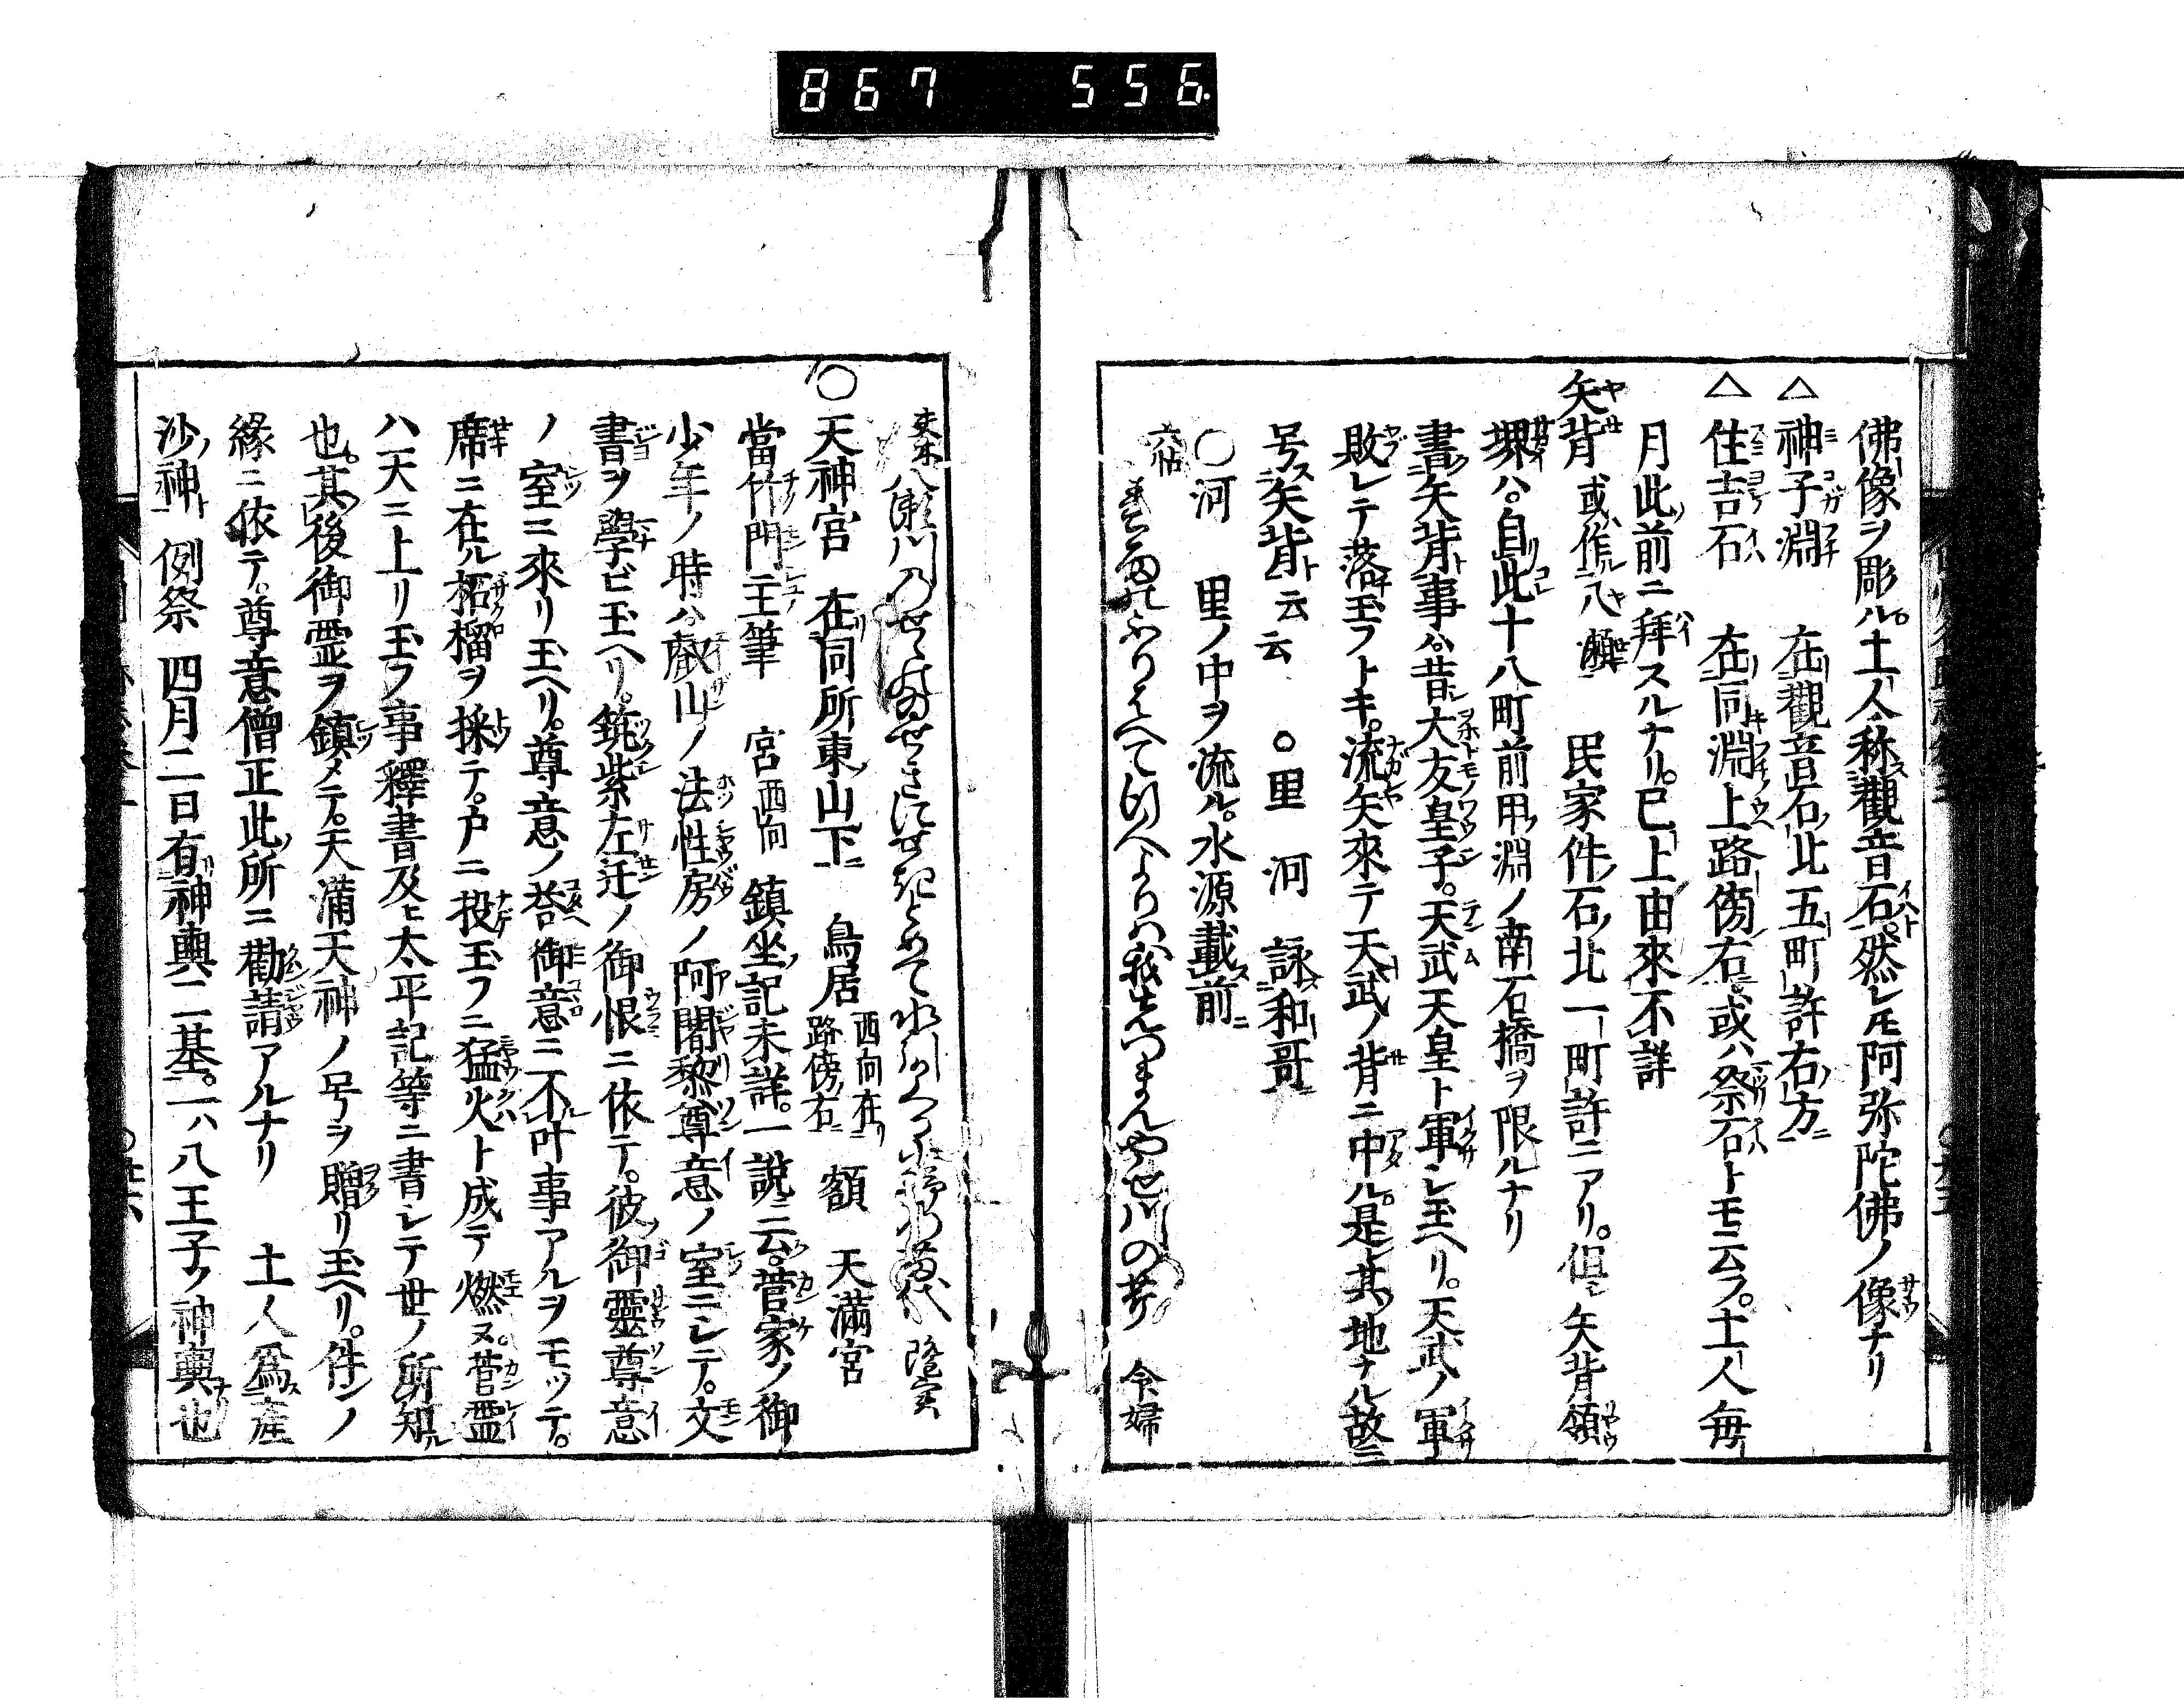 867 556
佛像ヲ彫ル。土人称觀音石。然レモ阿弥陀佛ノ像ナリ
△神子淵 在觀音石北五町許右方
△住吉石 在同淵上路傍右。或ハ祭石トモ云フ。土人毎
月此前ニ拜スルナリ。已上由來不詳
矢背 或作八瀬 民家件石北一町許ニアリ。但シ矢背領
堺ハ。自此十八町前甲淵ノ南石橋ヲ限ルナリ
書矢背事ハ。昔大友皇子。天武天皇ト軍シ玉ヘリ。天武ノ軍
敗レテ落玉フトキ。流矢來テ天武ノ背ニ中ル。是其地ナル故ニ
号矢背云云 ○里 河 詠和哥
○河 里ノ中ヲ流ル。水源載前
六帖 やせ川の 令婦
夫木 八瀬川乃 隆実
○天神宮 在同所東山下 鳥居 西向在路傍右 額 天滿宮
當竹門主筆 宮 西向 鎮坐記未詳。一說云。菅家ノ御
少年ノ時ハ。叡山ノ法性房ノ阿闍黎尊意ノ室ニシテ。文
書ヲ學ビ玉ヘリ。筑紫左迁ノ御恨ニ依テ。彼御靈尊意
ノ室ニ來リ玉ヘリ。尊意ノ答御意ニ不叶事アルヲモッテ。
席ニ在ル柘榴ヲ採テ。戸ニ投玉フニ猛火ト成テ燃ヌ。菅霊
ハ天ニ上リ玉フ事釋書及ヒ太平記等ニ書シテ世ノ所知
也。其後御霊ヲ鎮メテ。天滿天神ノ号ヲ贈リ玉ヘリ。件ンノ
緣ニ依テ。尊意僧正此所ニ勸請アルナリ 土人爲産
沙神 例祭 四月二日有神輿二基。一ハ八王子ノ神輿也